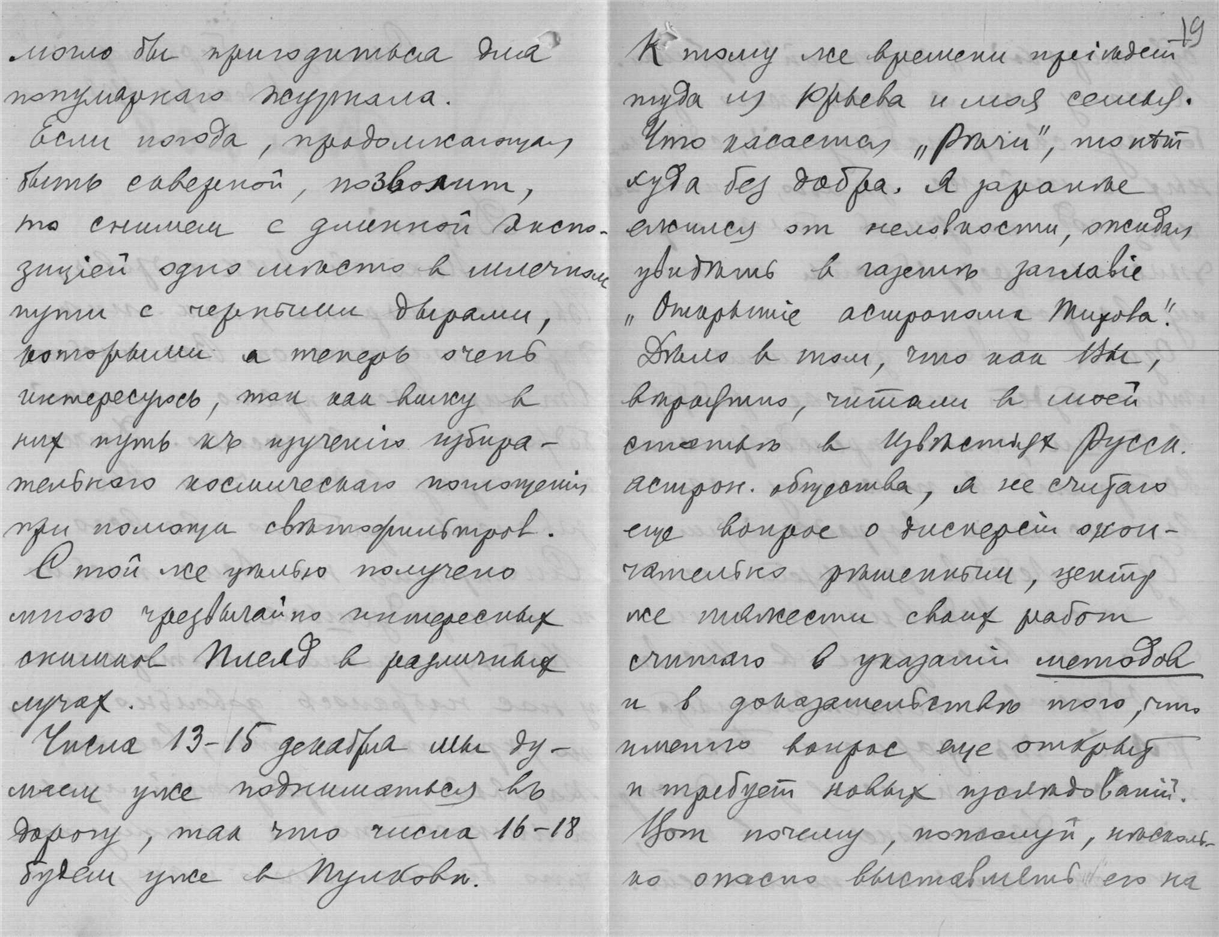 могло бы пригодиться для
популярнаго журнала.
Если погода, продолжающая
быть скверной, позволит,
то снимем с длинной экспо-
зиціей одно мѣсто в млечном
пути с черными дырами,
которыми я теперь очень
интересуюсь, так как вижу в
них путь къ изученію избира-
тельнаго космическаго поглощенія
при помощи свѣтофильтров.
С той же цѣлью получено
много чрезвычайно интересных
снимков Плеяд в различных
лучах.
Числа 13-15 декабря мы ду-
маем уже подниматься въ
дорогу, так что числа 16-18
будем уже в Пулковѣ.
19
К тому же времени пріѣдет
туда из Юрьева и моя семья.
Что касается „Рѣчи“, то нѣт
худа без добра. Я заранѣе
ежился от неловкости, ожидая
увидѣть в газетѣ заглавіе
„Открытіе астронома Тихова“.
Дѣло в том, что как Вы,
вѣроятно, читали в моей
статьѣ в Извѣстіях Русск.
астрон. общества, я не считаю
еще вопрос о дисперсіи окон-
чательно рѣшенным, центр
же тяжести своих работ
считаю в указаніи методов
и в доказательствѣ того, что
именно вопрос еще открыт
и требует новых изслѣдованій.
Вот почему, пожалуй, нѣсколь-
ко опасно выставлять его на